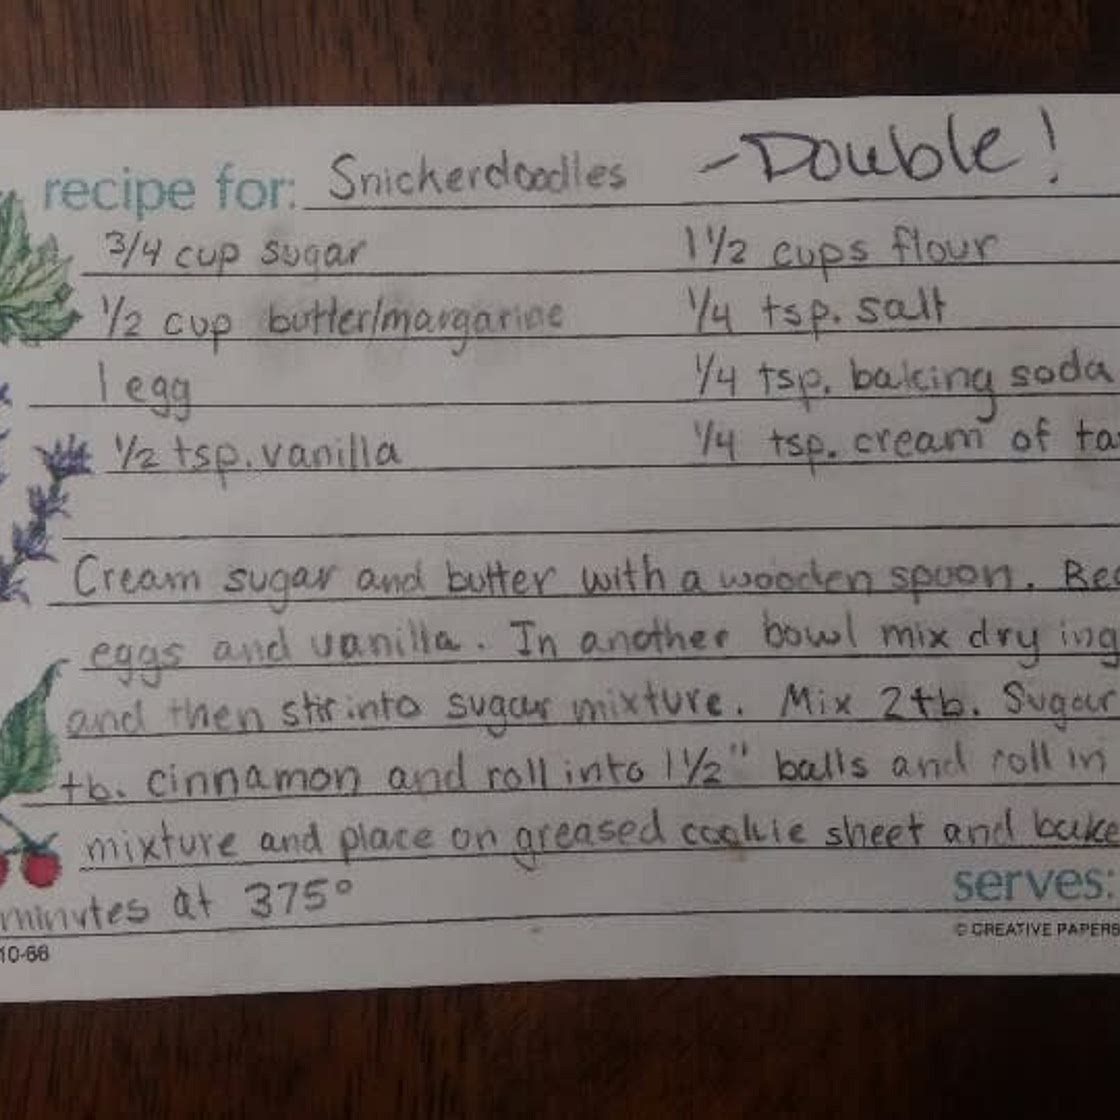 recipe for: Snickerdoodles - Double!
3/4 cup sugar 1 1/2 cups flour
1/2 cup butter/margarine 1/4 tsp. salt
1 egg 1/4 tsp. baking soda
1/2 tsp. vanilla 1/4 tsp. cream of
Cream sugar and butter with a wooden spoon.
eggs and vanilla. In another bowl mix dry
and then stir into sugar mixture. Mix 2 tb. Sugar
tb. cinnamon and roll into 1 1/2" balls and roll in
mixture and place on greased cookie sheet and bake
minutes at 375°
serves:
© CREATIVE PAPERS
10-66